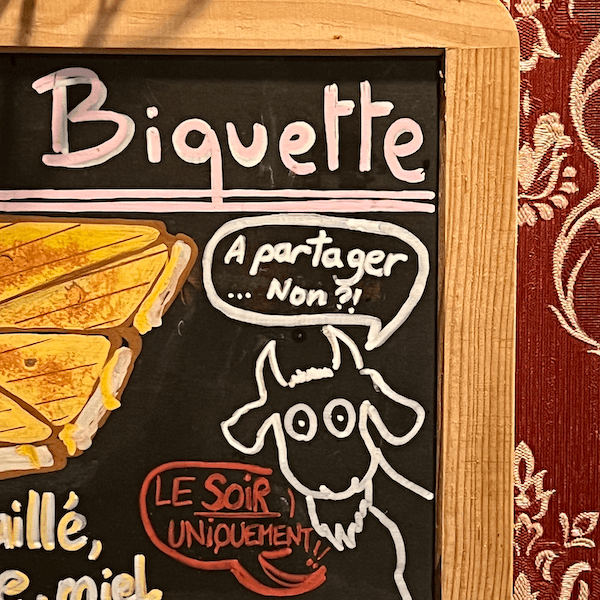 Biquette
A partager
... Non ?!
LE SOIR,
UNIQUEMENT!!
miel